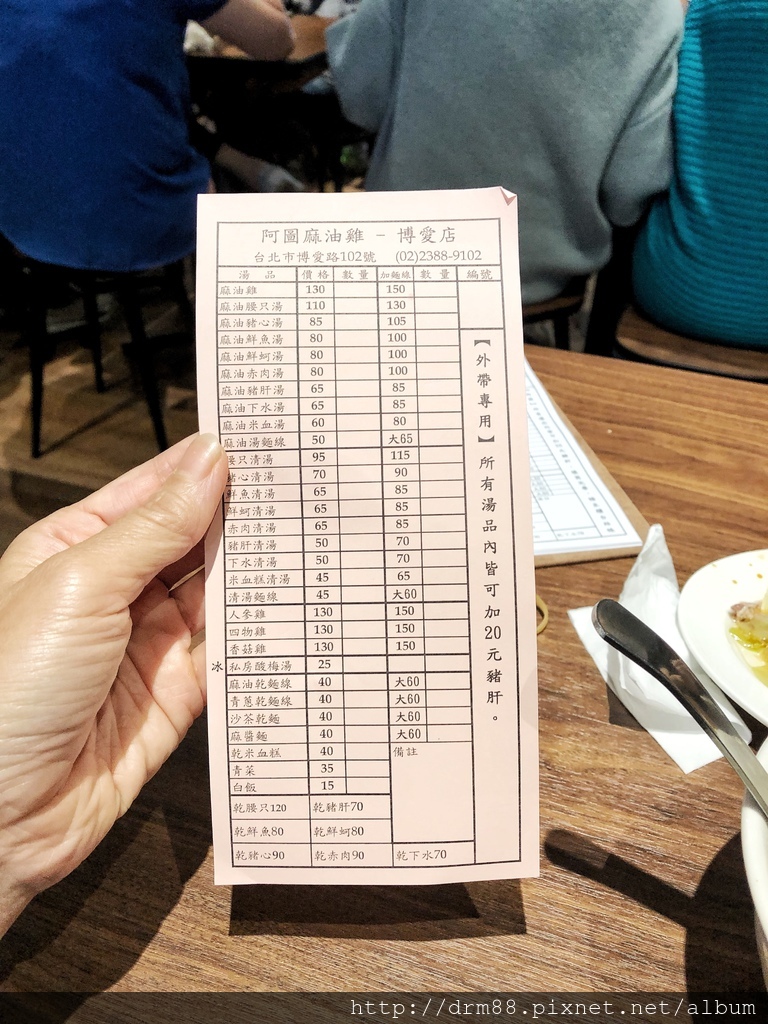 阿圖麻油雞 - 博愛店
台北市博愛路102號 (02)2388-9102
湯 品 價格 數量 加麵線 數 量 編號
麻油雞 130 150
麻油腰只湯 110 130
麻油豬心湯 85 105
麻油鮮魚湯 80 100
麻油鮮蚵湯 80 100
麻油赤肉湯 80 100
麻油豬肝湯 65 85
麻油下水湯 65 85
麻油米血湯 60 80
麻油湯麵線 50 大65
腰只清湯 95 115
豬心清湯 70 90
鮮魚清湯 65 85
鮮蚵清湯 65 85
赤肉清湯 65 85
豬肝清湯 50 70
下水清湯 50 70
米血糕清湯 45 65
清湯麵線 45 大60
人參雞 130 150
四物雞 130 150
香菇雞 130 150
冰 私房酸梅湯 25
麻油乾麵線 40 大60
青蔥乾麵線 40 大60
沙茶乾麵 40 大60
麻醬麵 40 大60
乾米血糕 40 備註
青菜 35
白飯 15
乾腰只120 乾豬肝70
乾鮮魚80 乾鮮蚵80
乾豬心90 乾赤肉90 乾下水70
【外帶專用】所有湯品內皆可加20元豬肝。
http://drm88.pixnet.net/album